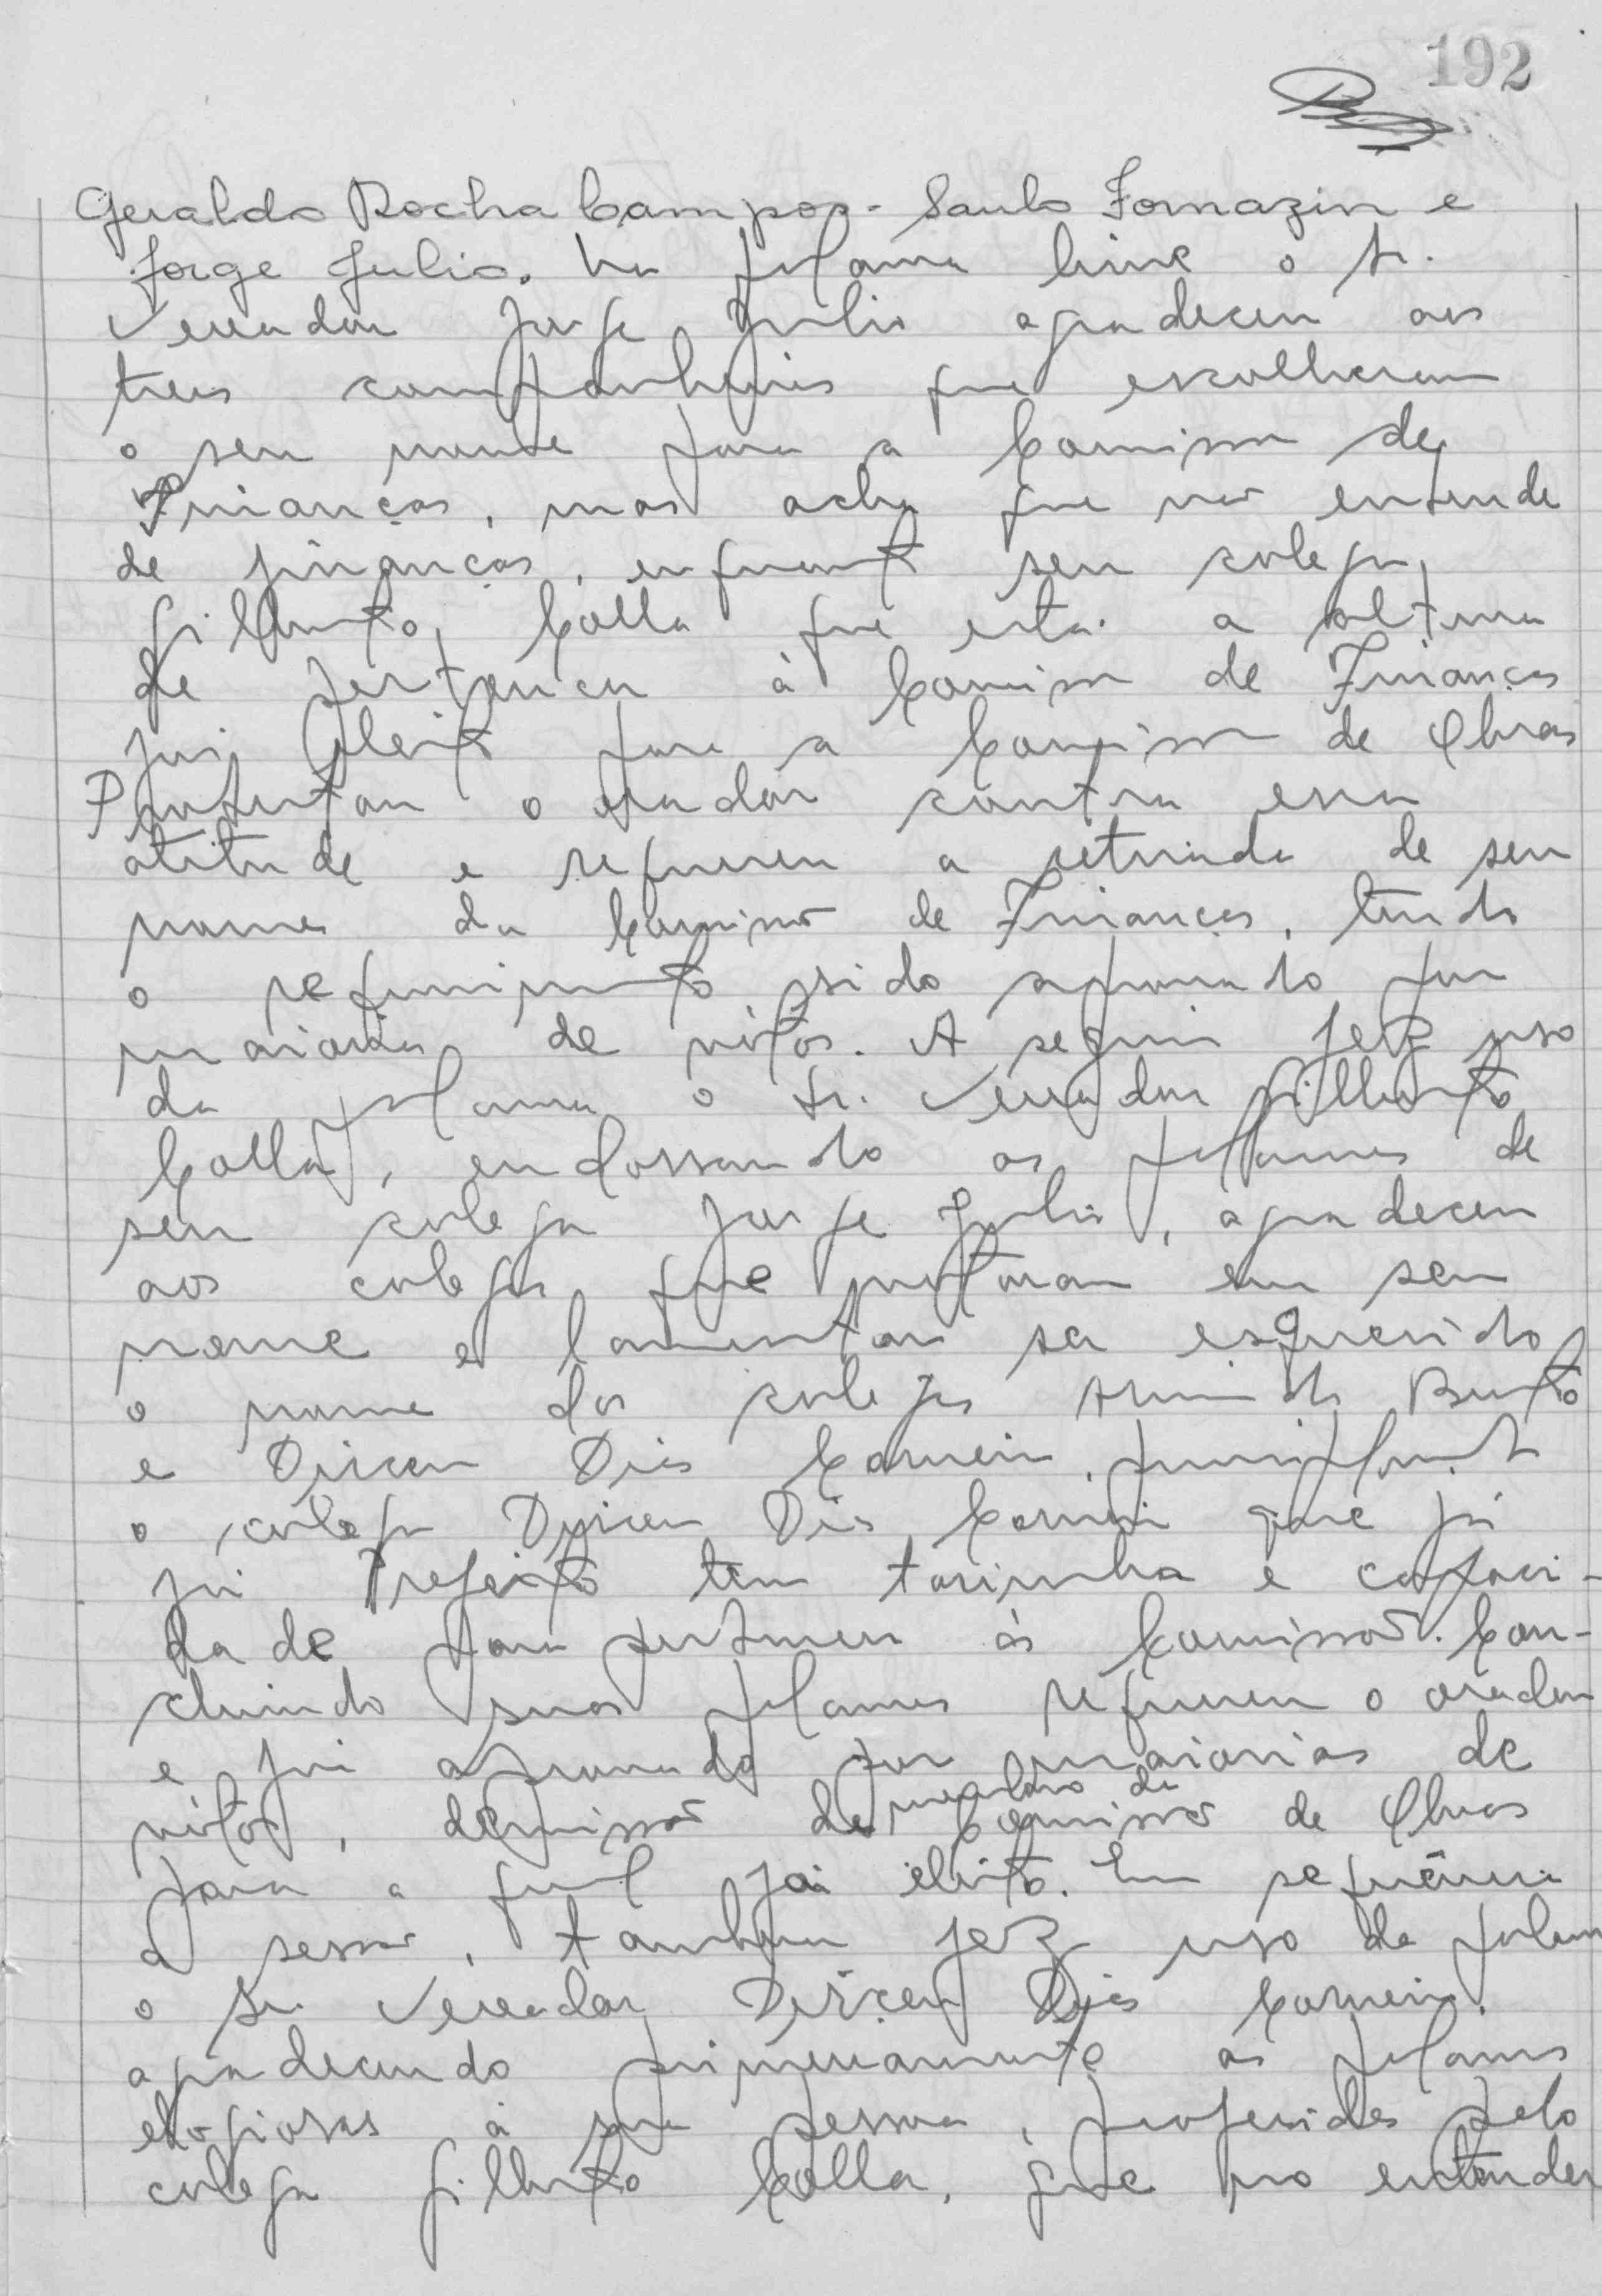 192
Geraldo Rocha Campos - Saulo Fornazin e
Jorge Julio. Na palavra livre o Sr.
Vereador Jorge Julio agradeceu aos
tres companheiros que escolheram
o seu nome para a Comissão de
Finanças, mas acha que não entende
de finanças, enquanto seu colega
Gilberto Colla que está a altura
de pertencer à Comissão de Finanças
foi eleito para a Comissão de Obras
Protestou o orador contra essa
atitude e requereu a retirada de seu
nome da Comissão de Finanças, tendo
o requerimento sido aprovado por
maioria de votos. A seguir fez uso
da palavra o Sr. Vereador Gilberto
Colla, endossando as palavras de
seu colega Jorge Julio, agradeceu
aos colegas que votaram em seu
nome e lamentou ser esquecido
o nome dos colegas Bento
e Dirceu Dias Carneiro, principalmente
o colega Dirceu Dias Carneiro que já
foi Prefeito tem tarimba e capaci-
dade para pertencer às Comissões. Con-
cluindo suas palavras requereu o orador
e foi aprovado por maiorias de
votos, demissão de membro da Comissão de Obras
para a qual foi eleito. Em sequência
a sessão, tambem fez uso da palavra
o Sr. Vereador Dirceu Dias Carneiro,
agradecendo primeiramente as palavras
elogiosas à sua pessoa, proferidas pelo
colega Gilberto Colla, que no entender